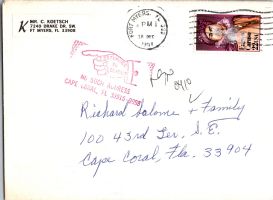 K MR. C. KOETSCH
7240 DRAKE DR. SW.
FT MYERS, FL 33908
FORT MYERS, FL
PM
18 DEC
22
NO SUCH ADDRESS
CAPE CORAL, FL
Richard Salome + Family
100 43rd Ter. S.E.
Cape Coral, Fla. 33904